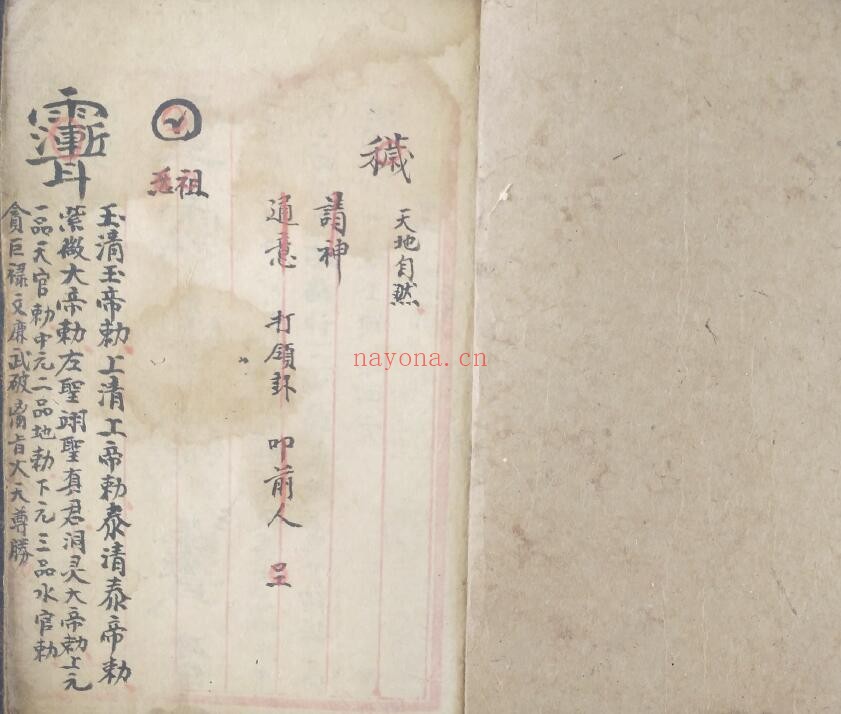 穢
天地自然
請神
通意 打領卦 叩前人 呈
祖
玉清玉帝勅上清上帝勅泰清泰帝勅
紫微大帝勅左聖翊聖真君洞灵大帝勅上元
一品天官勅中元二品地勅下元三品水官勅
貪巨禄文廉武破 旨大天尊勝
nayona.cn